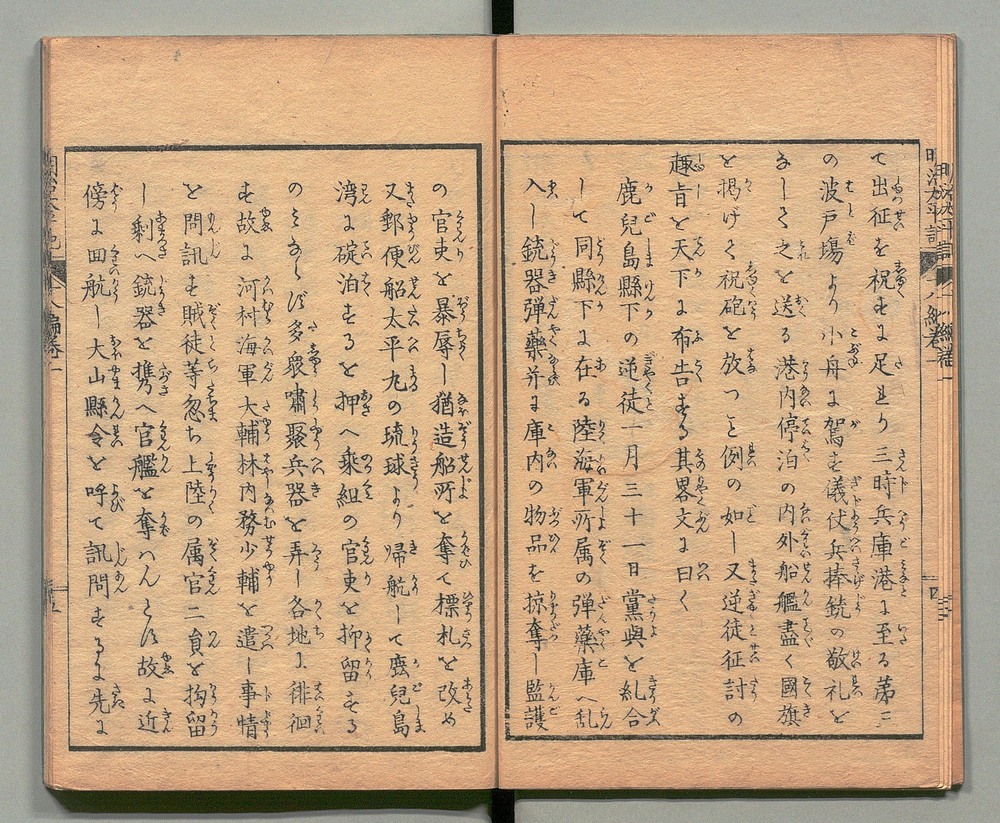 て出征を祝すに足れり三時兵庫港に至る第三
の波戸場より小舟に駕す儀仗兵捧銃の敬礼を
なして之を送る港内停泊の内外船艦盡く國旗
を掲げて祝砲を放つ例の如し又逆徒征討の
趣旨を天下に布告する其畧文に曰く
鹿兒島縣下の逆徒一月三十一日黨與を糺合
して同縣下に在る陸海軍所属の弾藥庫へ乱
入し銃器弾藥并に庫内の物品を掠奪し監護
の官吏を暴辱し猶造船所を奪て標札を改め
又郵便船太平丸の琉球より帰航して鹿兒島
湾に碇泊するを押へ乗組の官吏を抑留する
のみならず多衆嘯聚兵器を弄し各地に徘徊
す故に河村海軍大輔林内務少輔を遣し事情
を問訊す賊徒等忽ち上陸の属官二員を拘留
し剰へ銃器を携へ官艦を奪はんとす故に近
傍に回航し大山縣令を呼て訊問するに先に